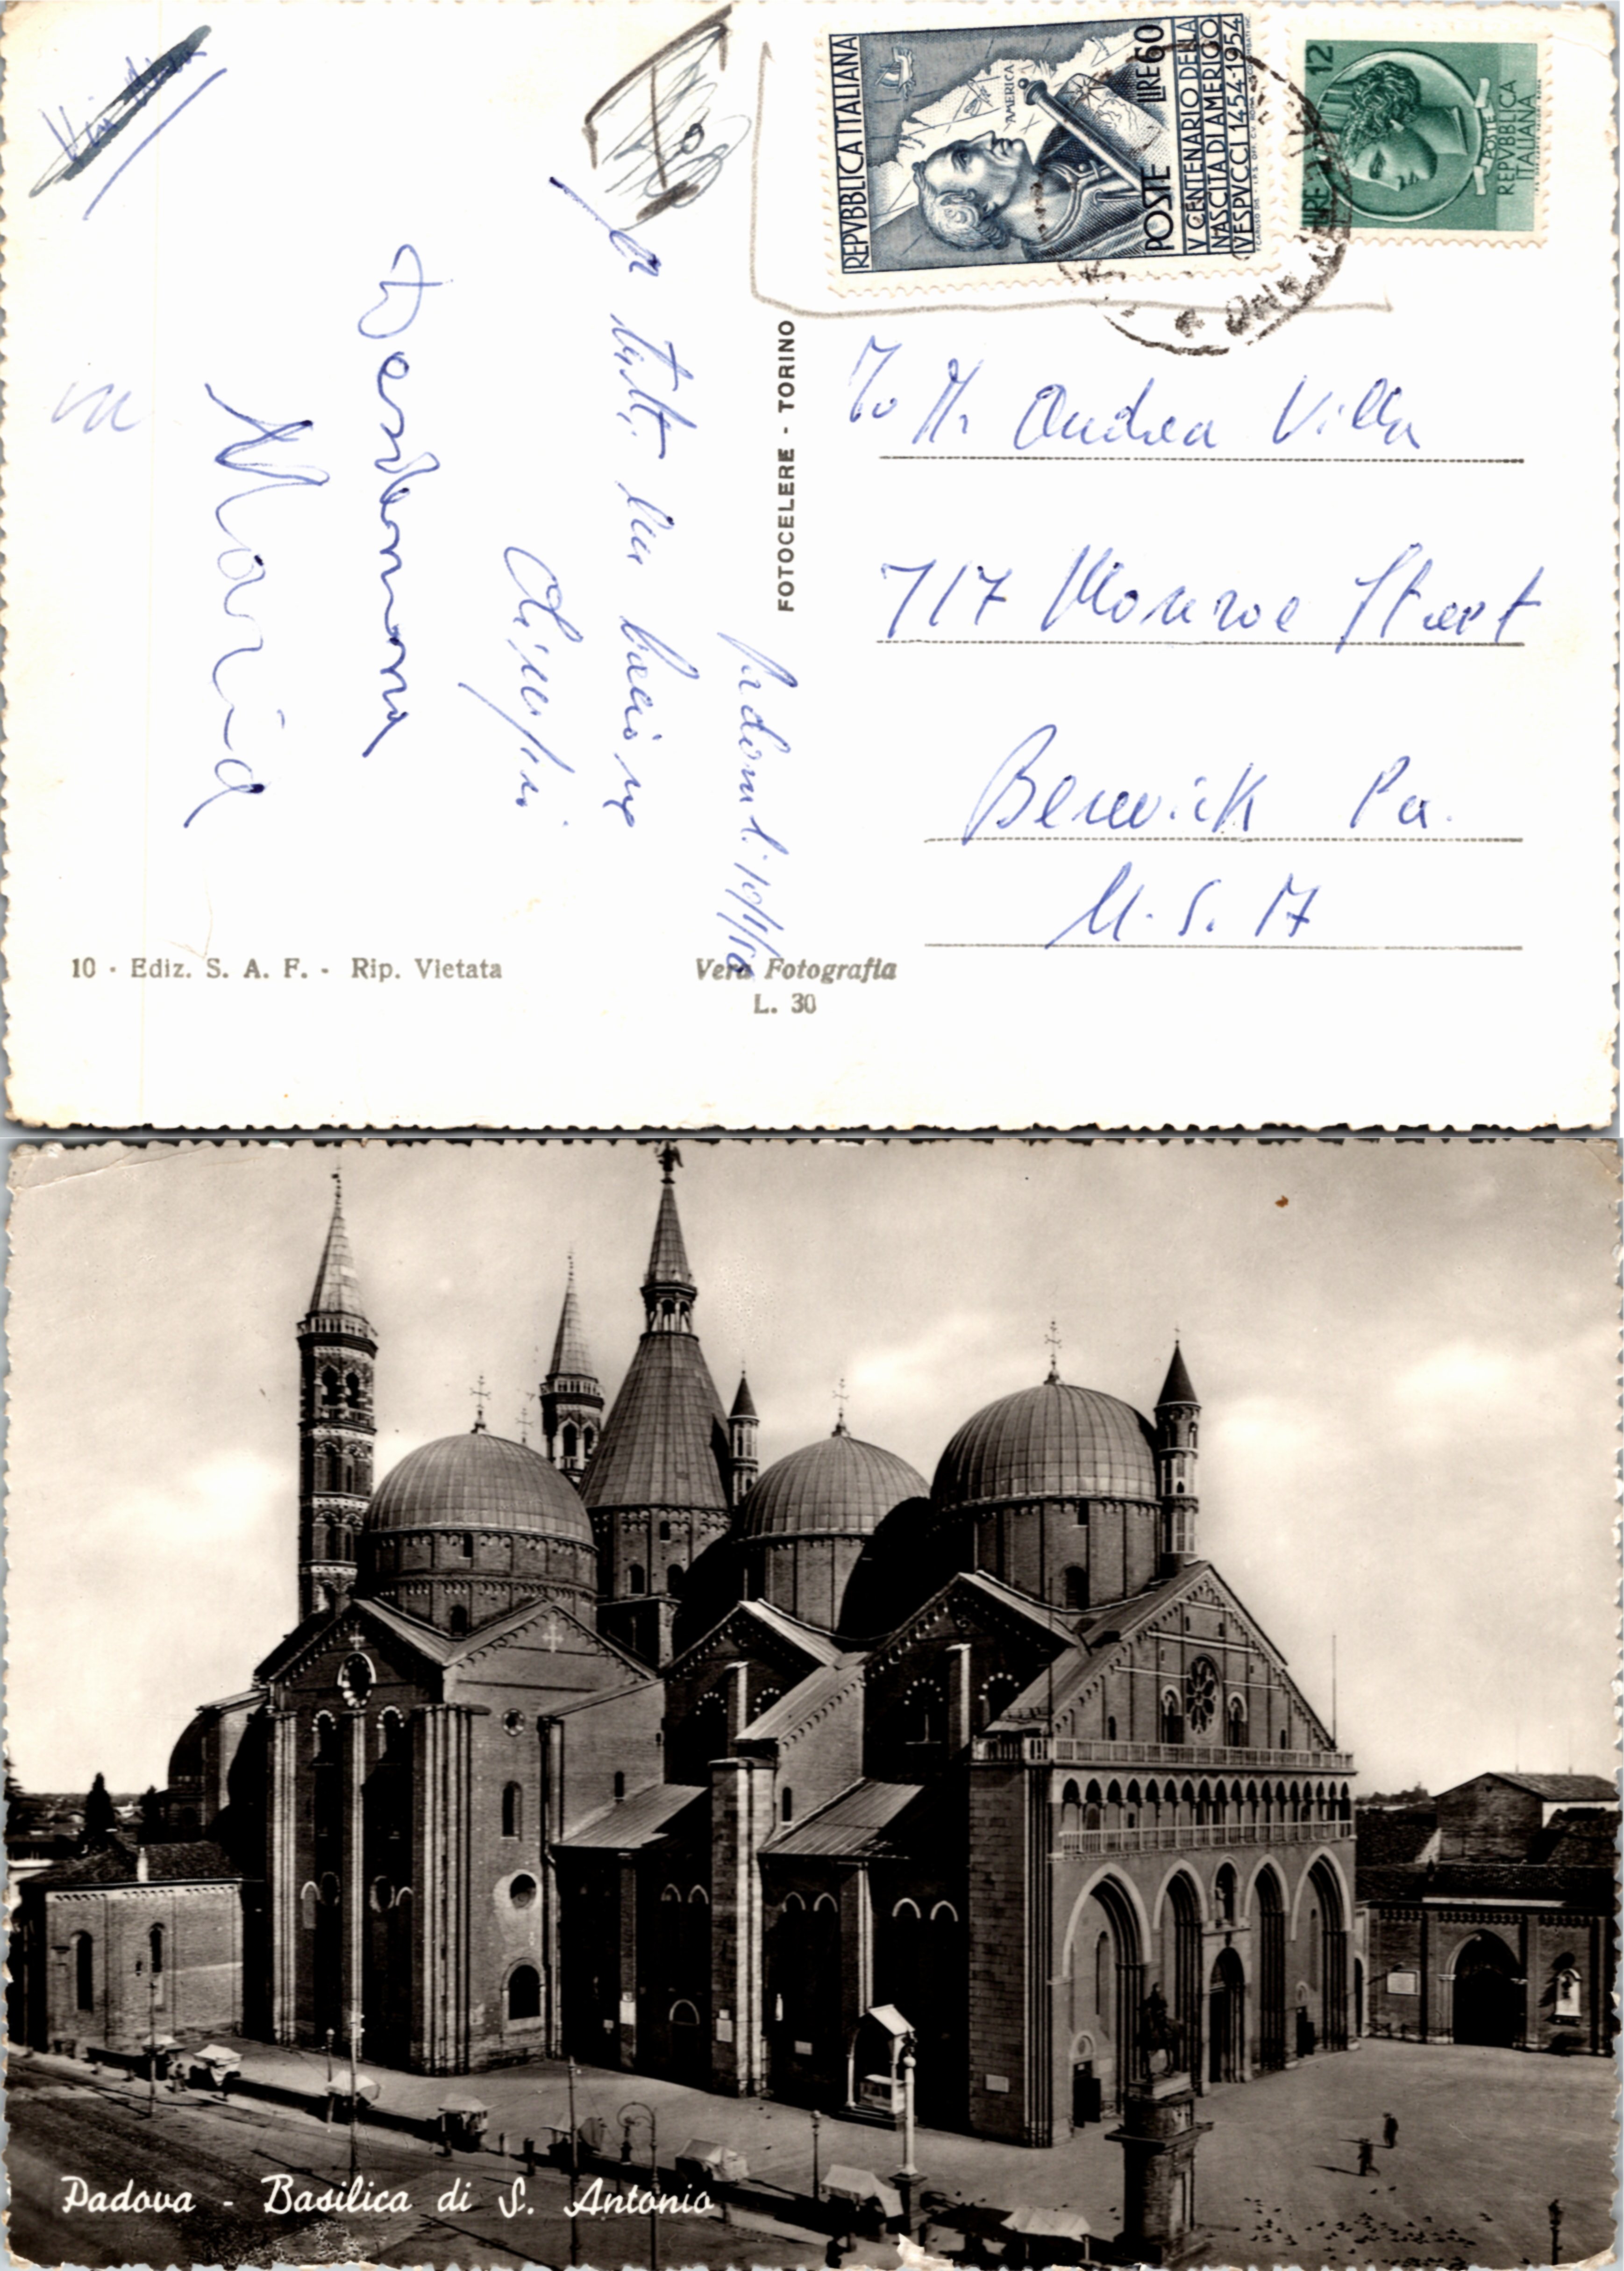 REPVBBLICA ITALIANA
AMERICA
POSTE LIRE 60
V CENTENARIO DELLA
NASCITA DI AMERIGO
VESPVCCI 1454-1954
LIRE 12
POSTE
REPVBBLICA
ITALIANA
a tutti un bacione
Desdemona
Maria
FOTOCELERE - TORINO
To Mr Andrea Villa
717 Monroe Street
Berwick Pa.
U. S. A
10 - Ediz. S. A. F. - Rip. Vietata
Vera Fotografia
L. 30
Padova - Basilica di S. Antonio